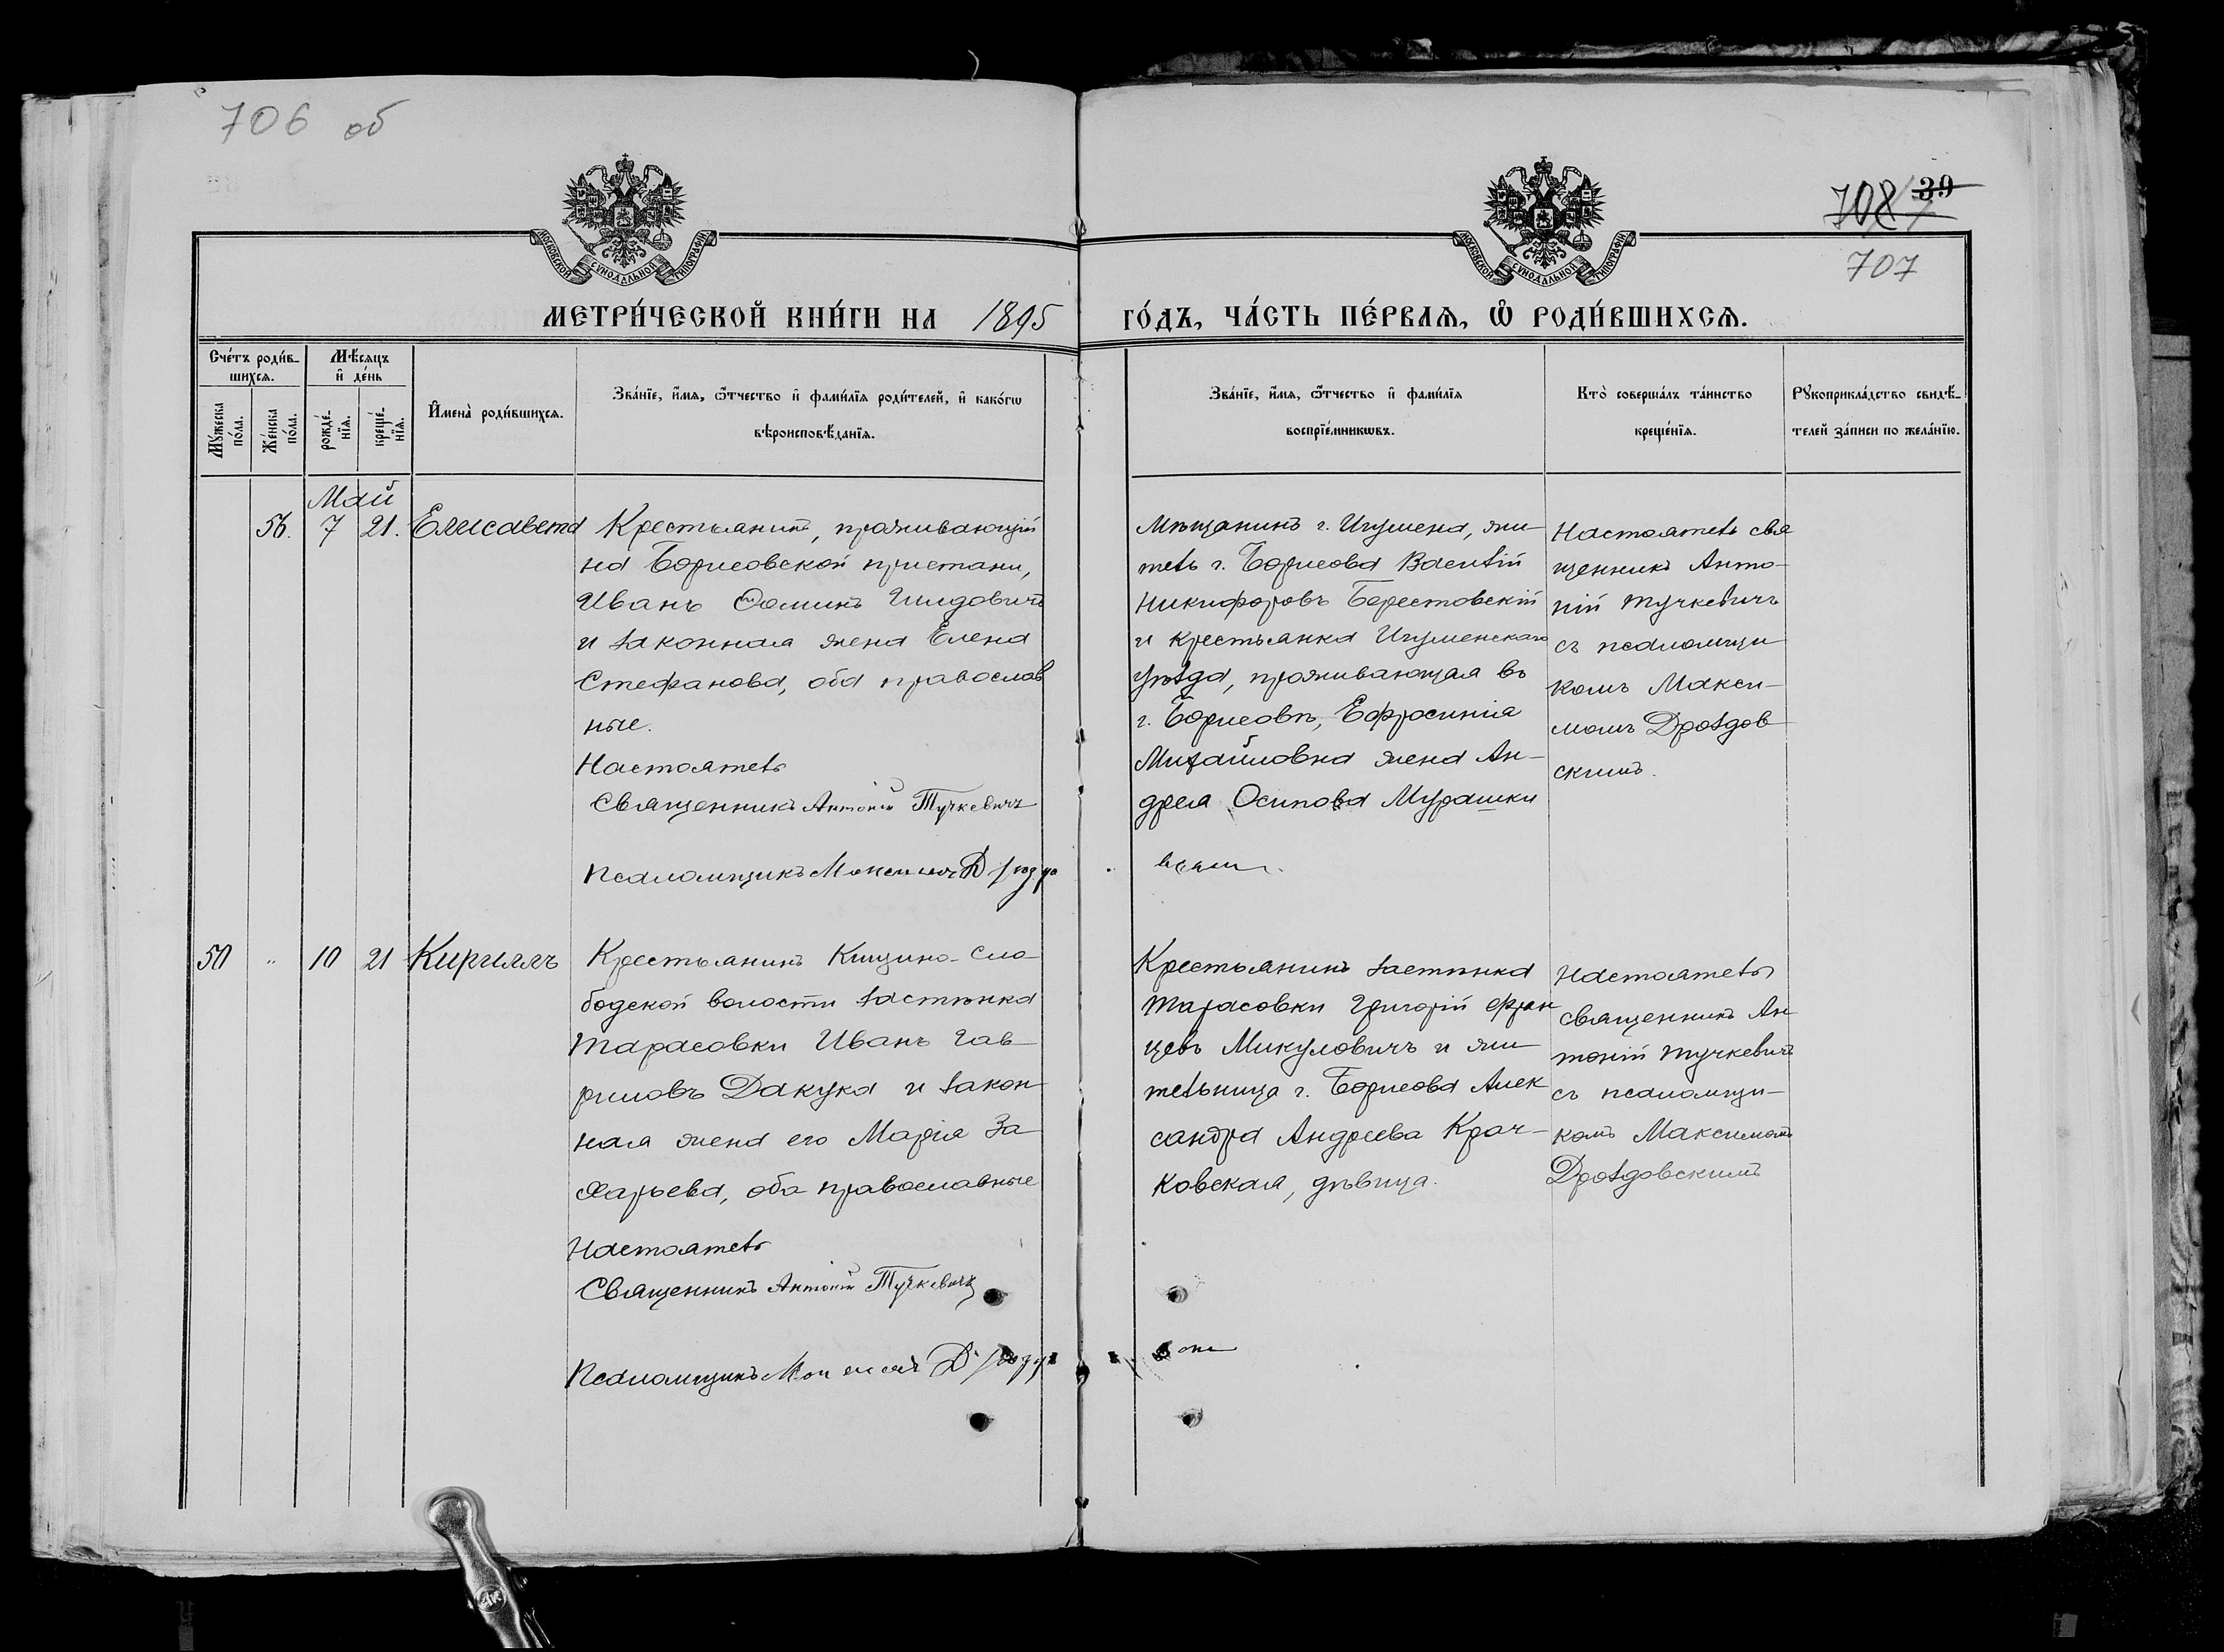 706 об
39
708/7
707
МОСКОВСКОЙ СУНОДАЛЬНОЙ ТИПОГРАФІИ
МОСКОВСКОЙ СУНОДАЛЬНОЙ ТИПОГРАФІИ
МЕТРИ́ЧЕСКОЙ КНИ́ГИ НА 1895
ГО́ДЪ, ЧА́СТЬ ПЕ́РВАѦ, Ѡ҆ РОДИ́ВШИХСѦ.
Сче́тъ роди́в-
шихсѧ.
Мѣ́сѧцъ
и҆ де́нь
Мꙋ́жеска
по́ла.
Же́нска
по́ла.
рожде́-
нїѧ.
креще́-
нїѧ.
И҆мена̀ роди́вшихсѧ.
Зва́нїе, и҆́мѧ, ѻ҆́тчество и҆ фами́лїѧ роди́телей, и҆ како́гѡ
вѣроисповѣ́данїѧ.
Зва́нїе, и҆́мѧ, ѻ҆́тчество и҆ фами́лїѧ
воспрїе́мникѡвъ.
Кто̀ соверша́лъ та́инство
креще́нїѧ.
Рꙋкоприкла́дство свидѣ́-
телей за́писи по жела́нїю.
Май
56. 7 21. Елисавета
Крестьянинъ, проживающій
на Борисовской пристани,
Иванъ Ѳоминъ
и законная жена Елена
Стефанова, оба православ
ные.
Настоятель
Священникъ Антоній Тучкевичъ
Псаломщикъ Максимъ Дроздо
Мѣщанинъ г. Игумена, жи-
тель г. Борисова Василій
Никифоровъ Берестовскій
и крестьянка Игуменскаго
уѣзда, проживающая въ
г. Борисовѣ, Ефросинія
Михайловна жена Ан-
дрея Осипова Мурашки
вскій.
Настоятель свя
щенникъ Анто-
ній Тучкевичъ
съ псаломщи
комъ Макси-
момъ Дроздов
скимъ.
50 " 10 21 Кириллъ
Крестьянинъ Кищино-Сло-
бодской волости застѣнка
Тарасовки Иванъ Гав-
риловъ Дакука и закон-
ная жена его Марія За-
харьева, оба православные
Настоятель
Священникъ Антоній Тучкевичъ
Псаломщикъ Максимъ Дроздо
Крестьянинъ застѣнка
Тарасовки Григорій Фран
цевъ Микуловичъ и жи-
тельница г. Борисова Алек
сандра Андреева Крач-
ковская, дѣвица.
Настоятель
священникъ Ан
тоній Тучкевичъ
съ псаломщи-
комъ Максимомъ
Дроздовскимъ